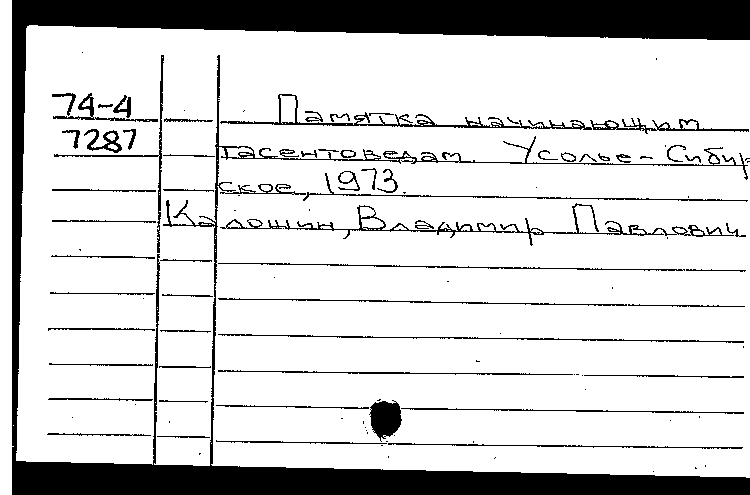 74-4 Памятка начинающим
7287 тасентоведам. Усолье-Сибир
ское, 1973.
Калошин, Владимир Павлович